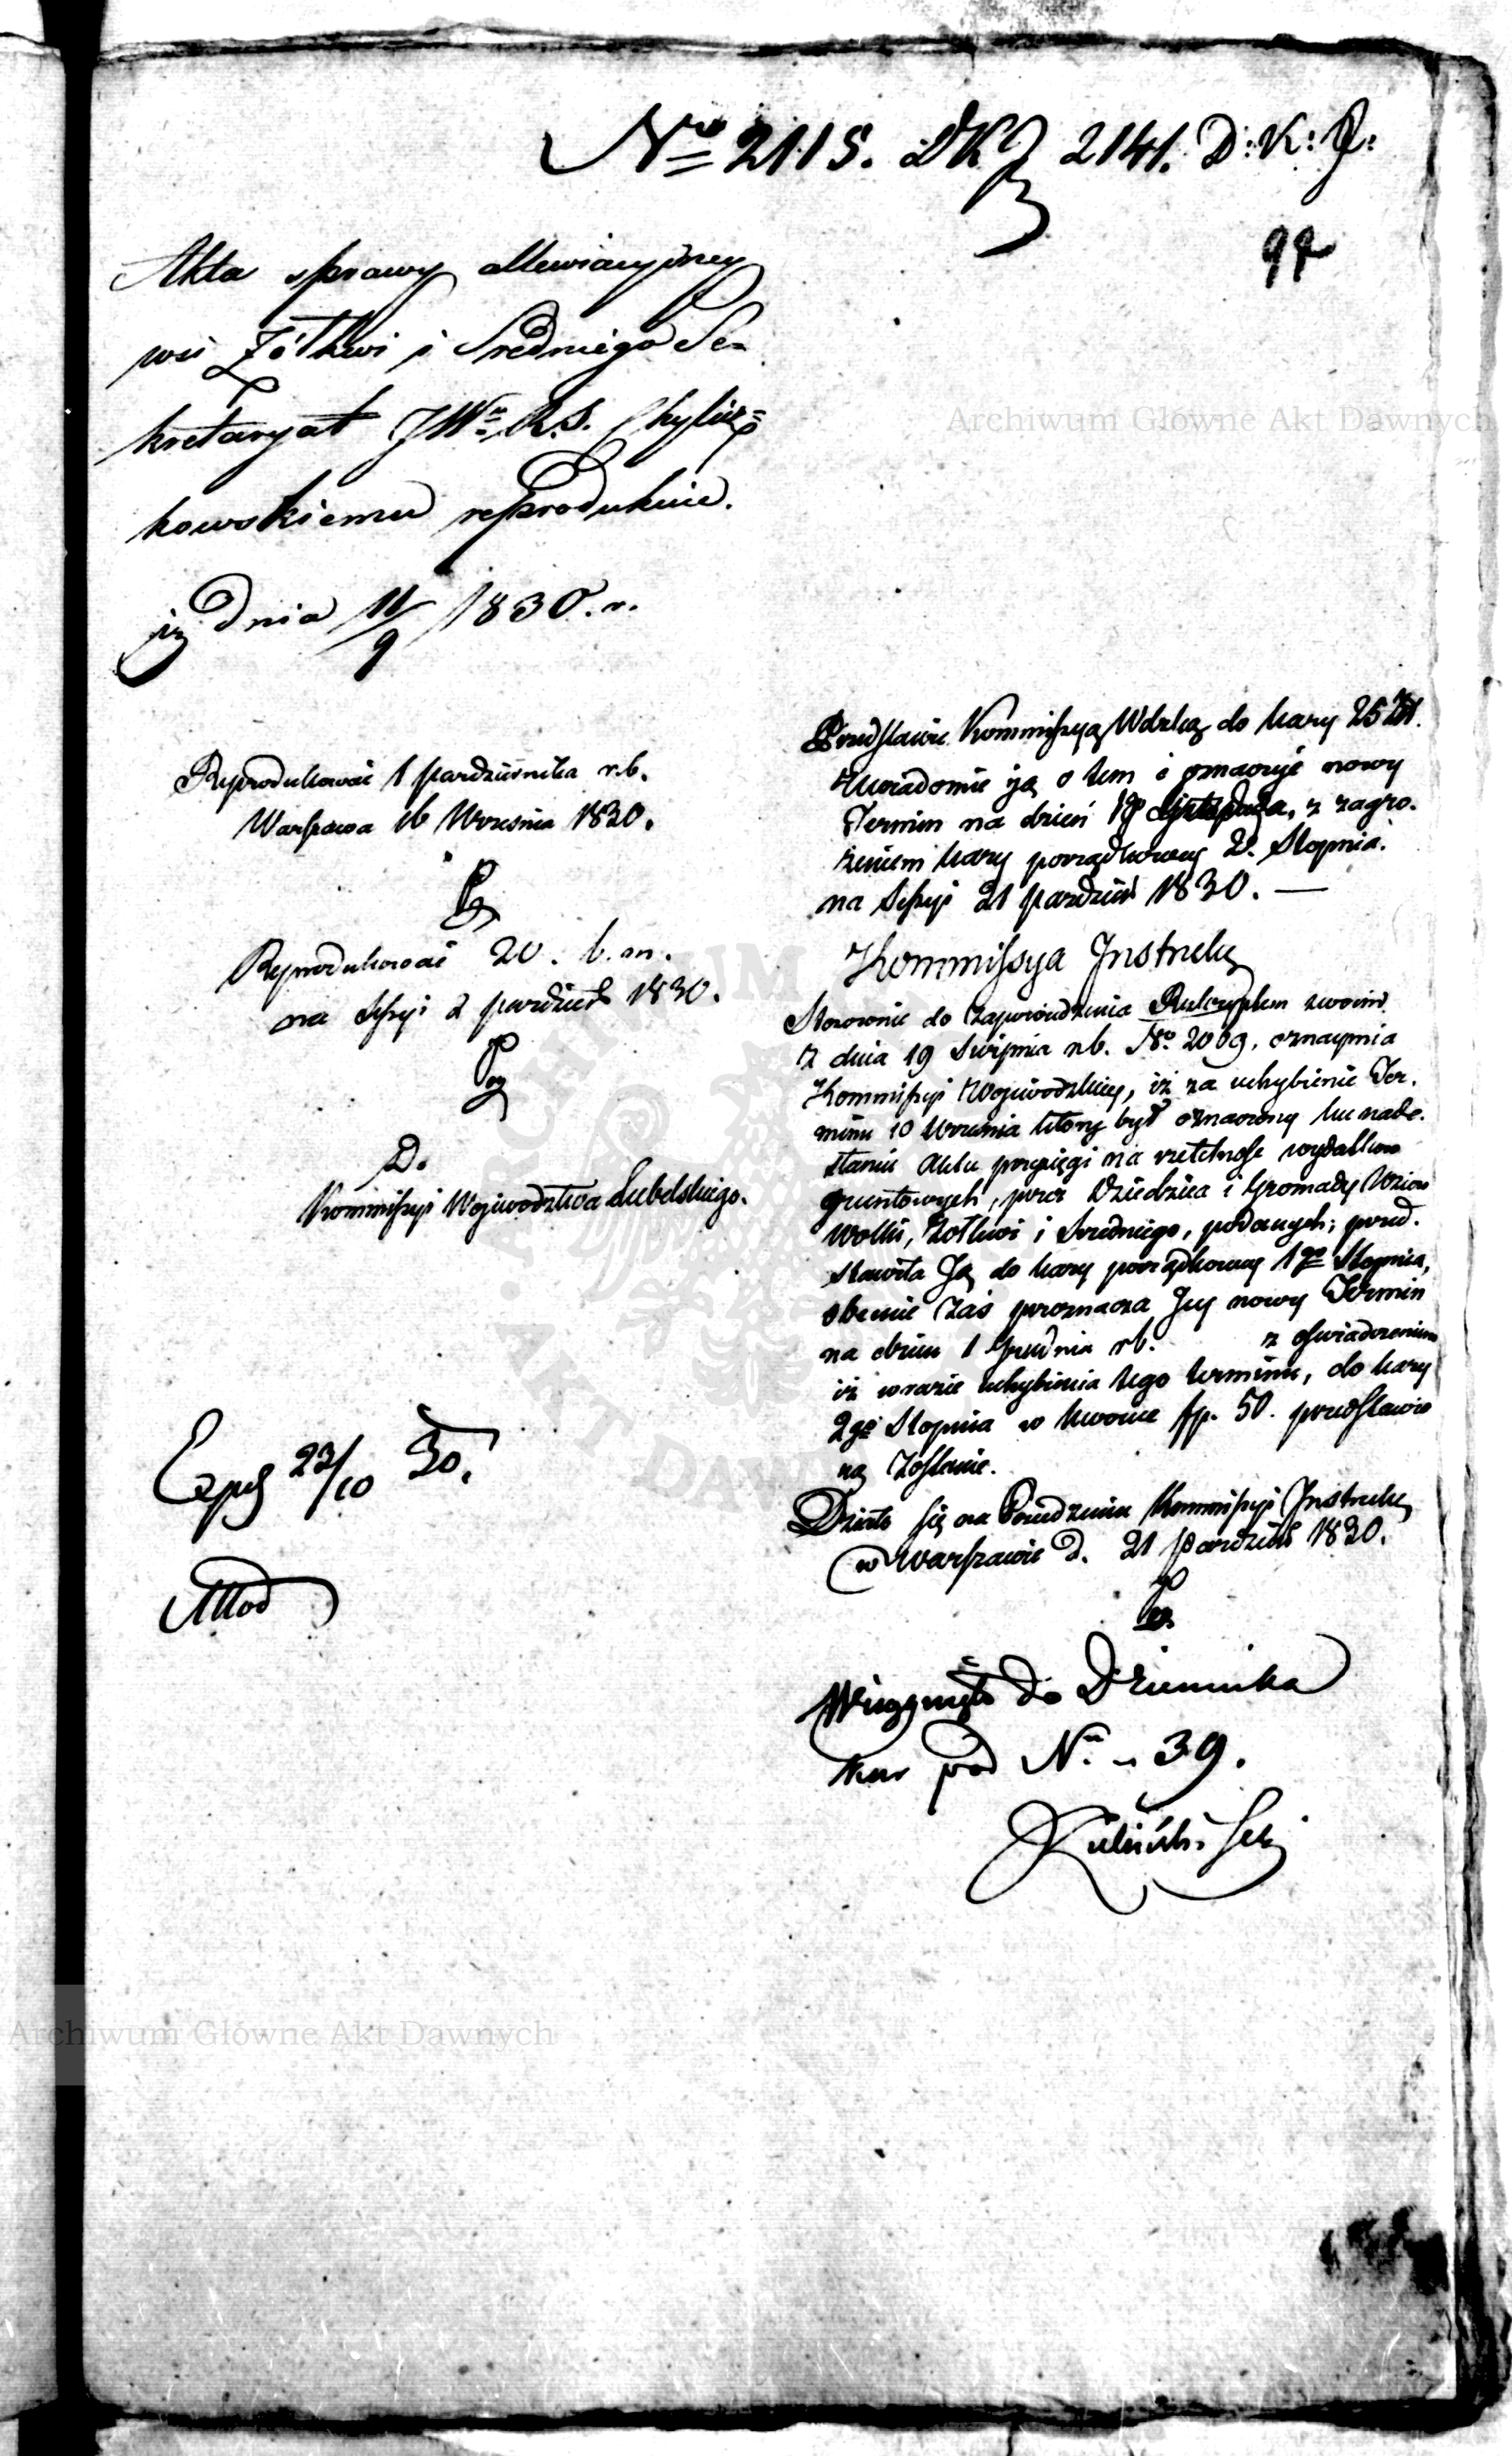 Nro 2115. DKJ 2141. D: K: J:
97
Akta sprawy allewiacyjney
wsi Żółkwi i Średniego Se-
kretaryat JWu R.S. Chylicz=
kowskiemu reprodukuie.
dnia 11/9 1830. r.
Reprodukować 1 Października r.b.
Warszawa 16 Września 1830.
Reprodukować 20. b.m.
na Sessyi 2 Paździer 1830.
Do
Kommissyi Województwa Lubelskiego.
Exped 23/10 30.
Przedstawić Kommissyą Wdzką do kary 25 Zł.
Zawiadomić ją o tem i oznaczyć nowy
Termin na dzień Listopada, z zagro-
żeniem kary porządkowey 2. Stopnia.
na Sessyi 21 Paździer 1830. —
Kommissya Instrukc
Stosownie do zapowiedzenia Reskryptem swoim
z dnia 19 Sierpnia r.b. No. 2069, oznaymia
Kommissyi Wojewódzkiey, iż za uchybienie Ter-
minu 10 Września który był oznaczony ku nade-
słaniu Aktu przysięgi na rzetelność wydatków
gruntowych, przez Dziedzica i Gromady Wsiów
Wolki, Żółkwi i Średniego, podanych; przed-
stawiła Ją do kary porządkowey 1go Stopnia,
obecnie zaś przeznacza Jey nowy Termin
na dzień 1 Grudnia r.b. z oświadczeniem
iż w razie uchybienia tego terminu, do kary
2go Stopnia w kwocie złp. 50. przedstawio
ną Zostanie.
Działo się na Posiedzeniu Kommissyi Instrukc
w Warszawie d. 21 Paździer 1830.
Wciągnięto do Dziennika
kar pod Nr. 39.
Archiwum Główne Akt Dawnych
Archiwum Główne Akt Dawnych
ARCHIWUM
AKT DAWNYCH